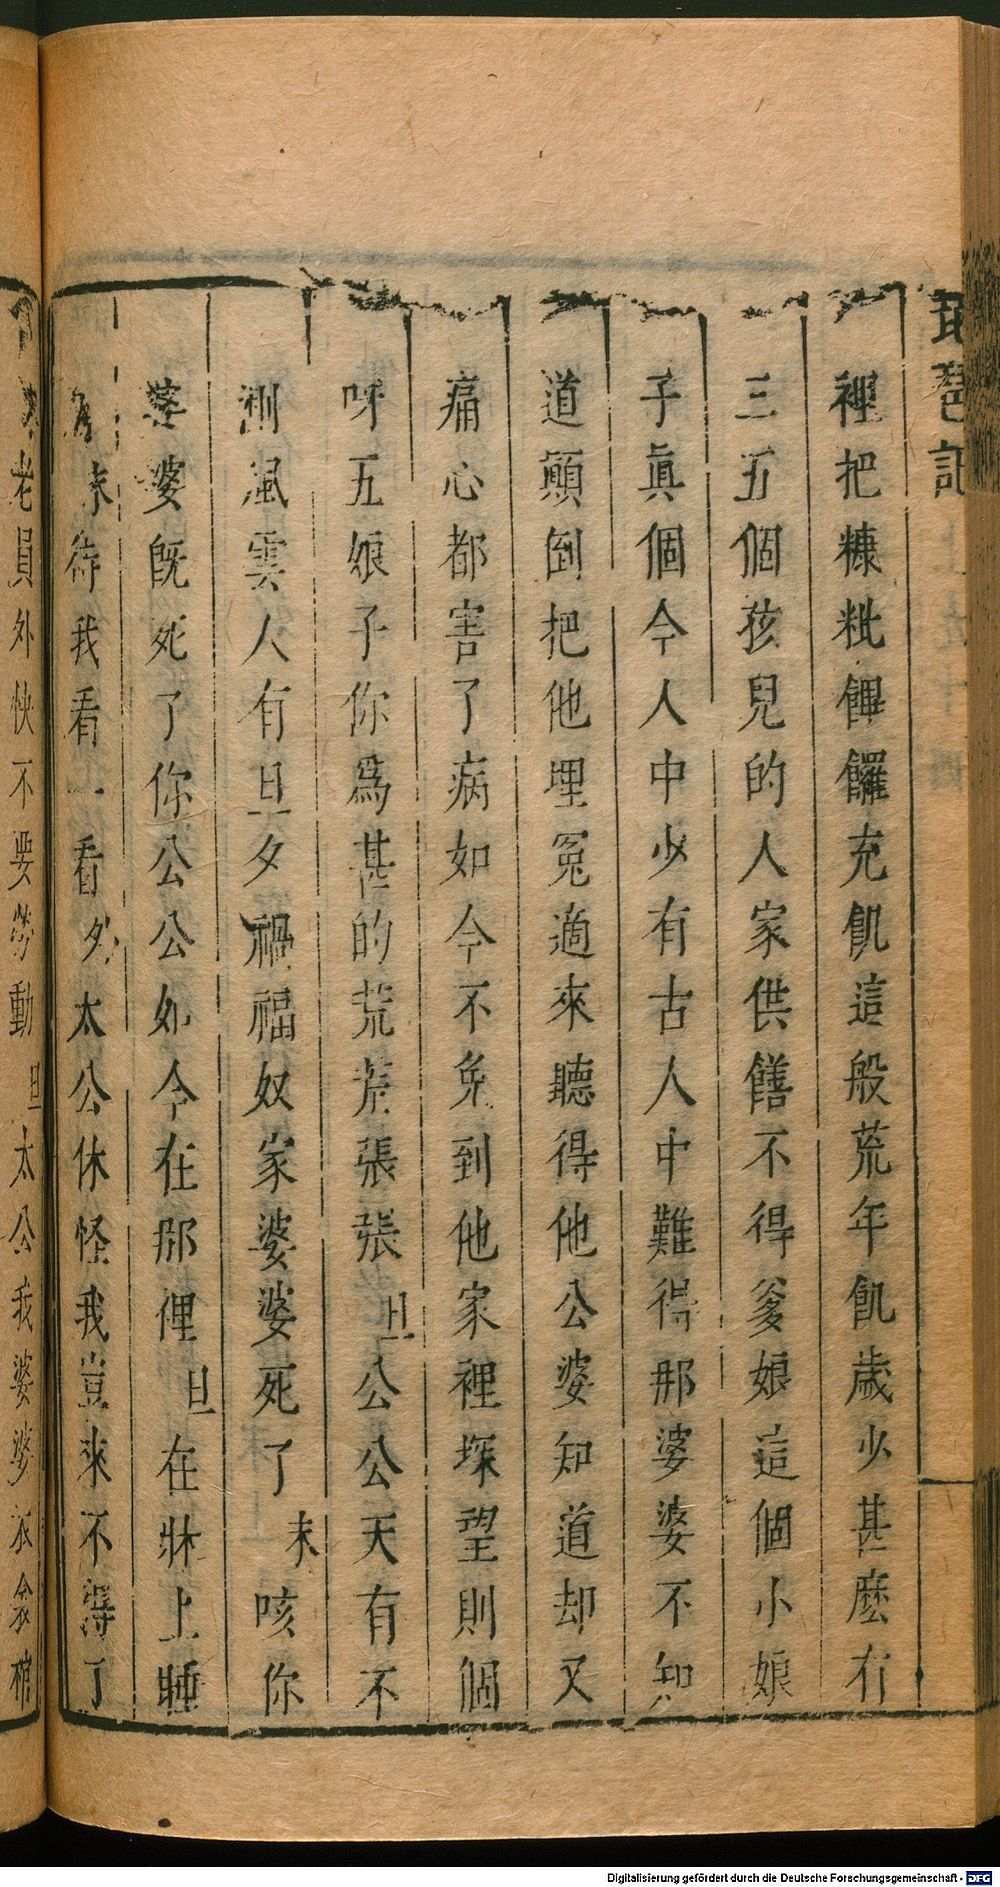 琵琶記
裡把糠粃饆饠充飢這般荒年飢歲少甚麽有
三五個孩兒的人家供饍不得爹娘這個小娘
子眞個今人中少有古人中難得那婆婆不知
道顚倒把他埋寃適來聽得他公婆知道却又
痛心都害了病如今不免到他家裡探望則個
呀五娘子你爲甚的荒荒張張旦公公天有不
測風雲人有旦夕禍福奴家婆婆死了末咳你
婆婆旣死了你公公如今在那俚旦在牀上睡
末待我看一看外太公休怪我豈來不得了
老員外快不要勞動旦太公我婆婆衣衾棺
Digitalisierung gefördert durch die Deutsche Forschungsgemeinschaft - DFG